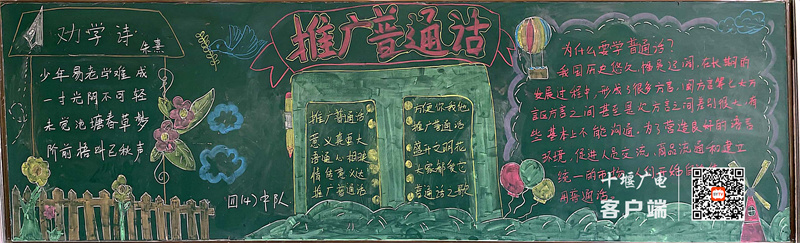 劝学诗
朱熹
少年易老学难成
一寸光阴不可轻
未觉池塘春草梦
阶前梧叶已秋声
四(4)中队
推广普通话
推广普通话
意义真重大
沟通心相连
情
推广普通话
方便你我他
推广普通话
盛开文明花
大家都爱它
普通话之歌
为什么要学普通话?
我国历史悠久,幅员辽阔,在长期的
发展过程中,形成了很多方言,闽方言等七大方
言区方言之间甚至是次方言之间差别很大,有
些基本上不能沟通。为了营造良好的语言
环境,促进人员交流,商品流通和建立
统一的市场,
用普通话
十堰广电
客户端